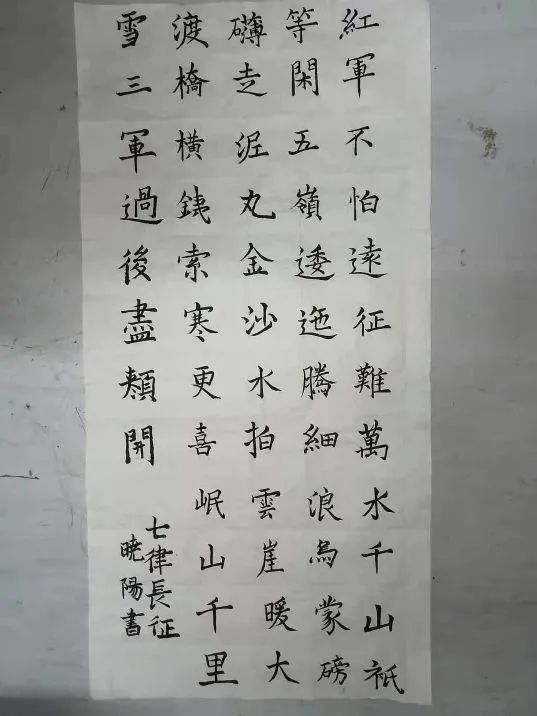 紅軍不怕遠征難萬水千山祇
等閑五嶺逶迤騰細浪烏蒙磅
礴走泥丸金沙水拍雲崖暖大
渡橋橫銕索寒更喜岷山千里
雪三軍過後盡開
七律長征
曉陽書